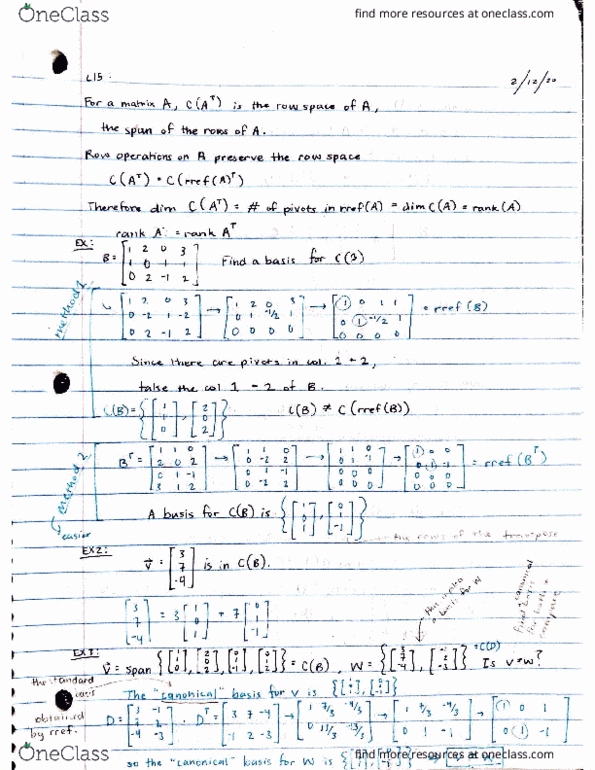 OneClass
find more resources at oneclass.com
L15:
2/12/20
For a matrix A, C(Aᵀ) is the row space of A,
the span of the rows of A.
Row operations on A preserve the row space
C(Aᵀ) = C(rref(A)ᵀ)
Therefore dim C(Aᵀ) = # of pivots in rref(A) = dim C(A) = rank(A)
rank A = rank Aᵀ
EX:
B = [1 2 0 3; 1 0 1 1; 0 2 -1 2] Find a basis for C(B)
method 1
[1 2 0 3; 0 -2 1 -2; 0 2 -1 2] → [1 2 0 3; 0 1 -1/2 1; 0 0 0 0] → [1 0 1 1; 0 1 -1/2 1; 0 0 0 0] = rref(B)
Since there are pivots in col. 1 + 2,
take the col 1 - 2 of B.
C(B) = {[1 1 0], [2 0 2]} C(B) ≠ C(rref(B))
method 2
easier
Bᵀ = [1 1 0; 2 0 2; 0 1 -1; 3 1 2] → [1 1 0; 0 -2 2; 0 1 -1; 0 -2 2] → [1 1 0; 0 1 -1; 0 0 0; 0 0 0] → = rref(Bᵀ)
A basis for C(B) is {[1 0 1], [0 1 -1]}
the rows of the transpose
EX2:
v = [3 7 -4] is in C(B).
[3 7 -4] = 3[1 0 1] + 7[0 1 -1]
basis for W
canonical
compare
V = span = C(B), W = = C(D) Is V = W?
the standard
obtained
by rref.
The "canonical" basis for V is
D = Dᵀ = [3 7 -4; -1 2 -3] → → [1 7/3 -4/3; 0 1 -1] → [1 0 1; 0 1 -1]
so the "canonical" basis for W is
OneClass
find more resources at oneclass.com